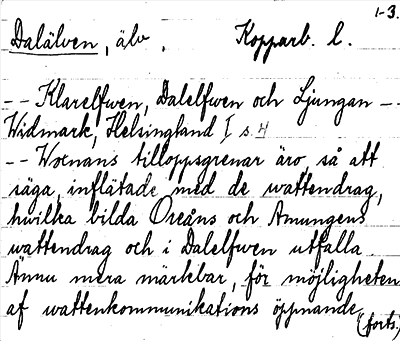 1-3.
Dalälven, älv. Kopparb. l.
-- Klarelfwen, Dalelfwen och Ljungan --
Widmark, Helsingland I s. 4
-- Woxnans tilloppsgrenar äro, så att
säga, inflätade med de wattendrag,
hwilka bilda Oreåns och Amungens
wattendrag och i Dalelfwen utfalla.
Ännu mera märkbar, för möjligheten
af wattenkommunikations öppnande,
(forts.)